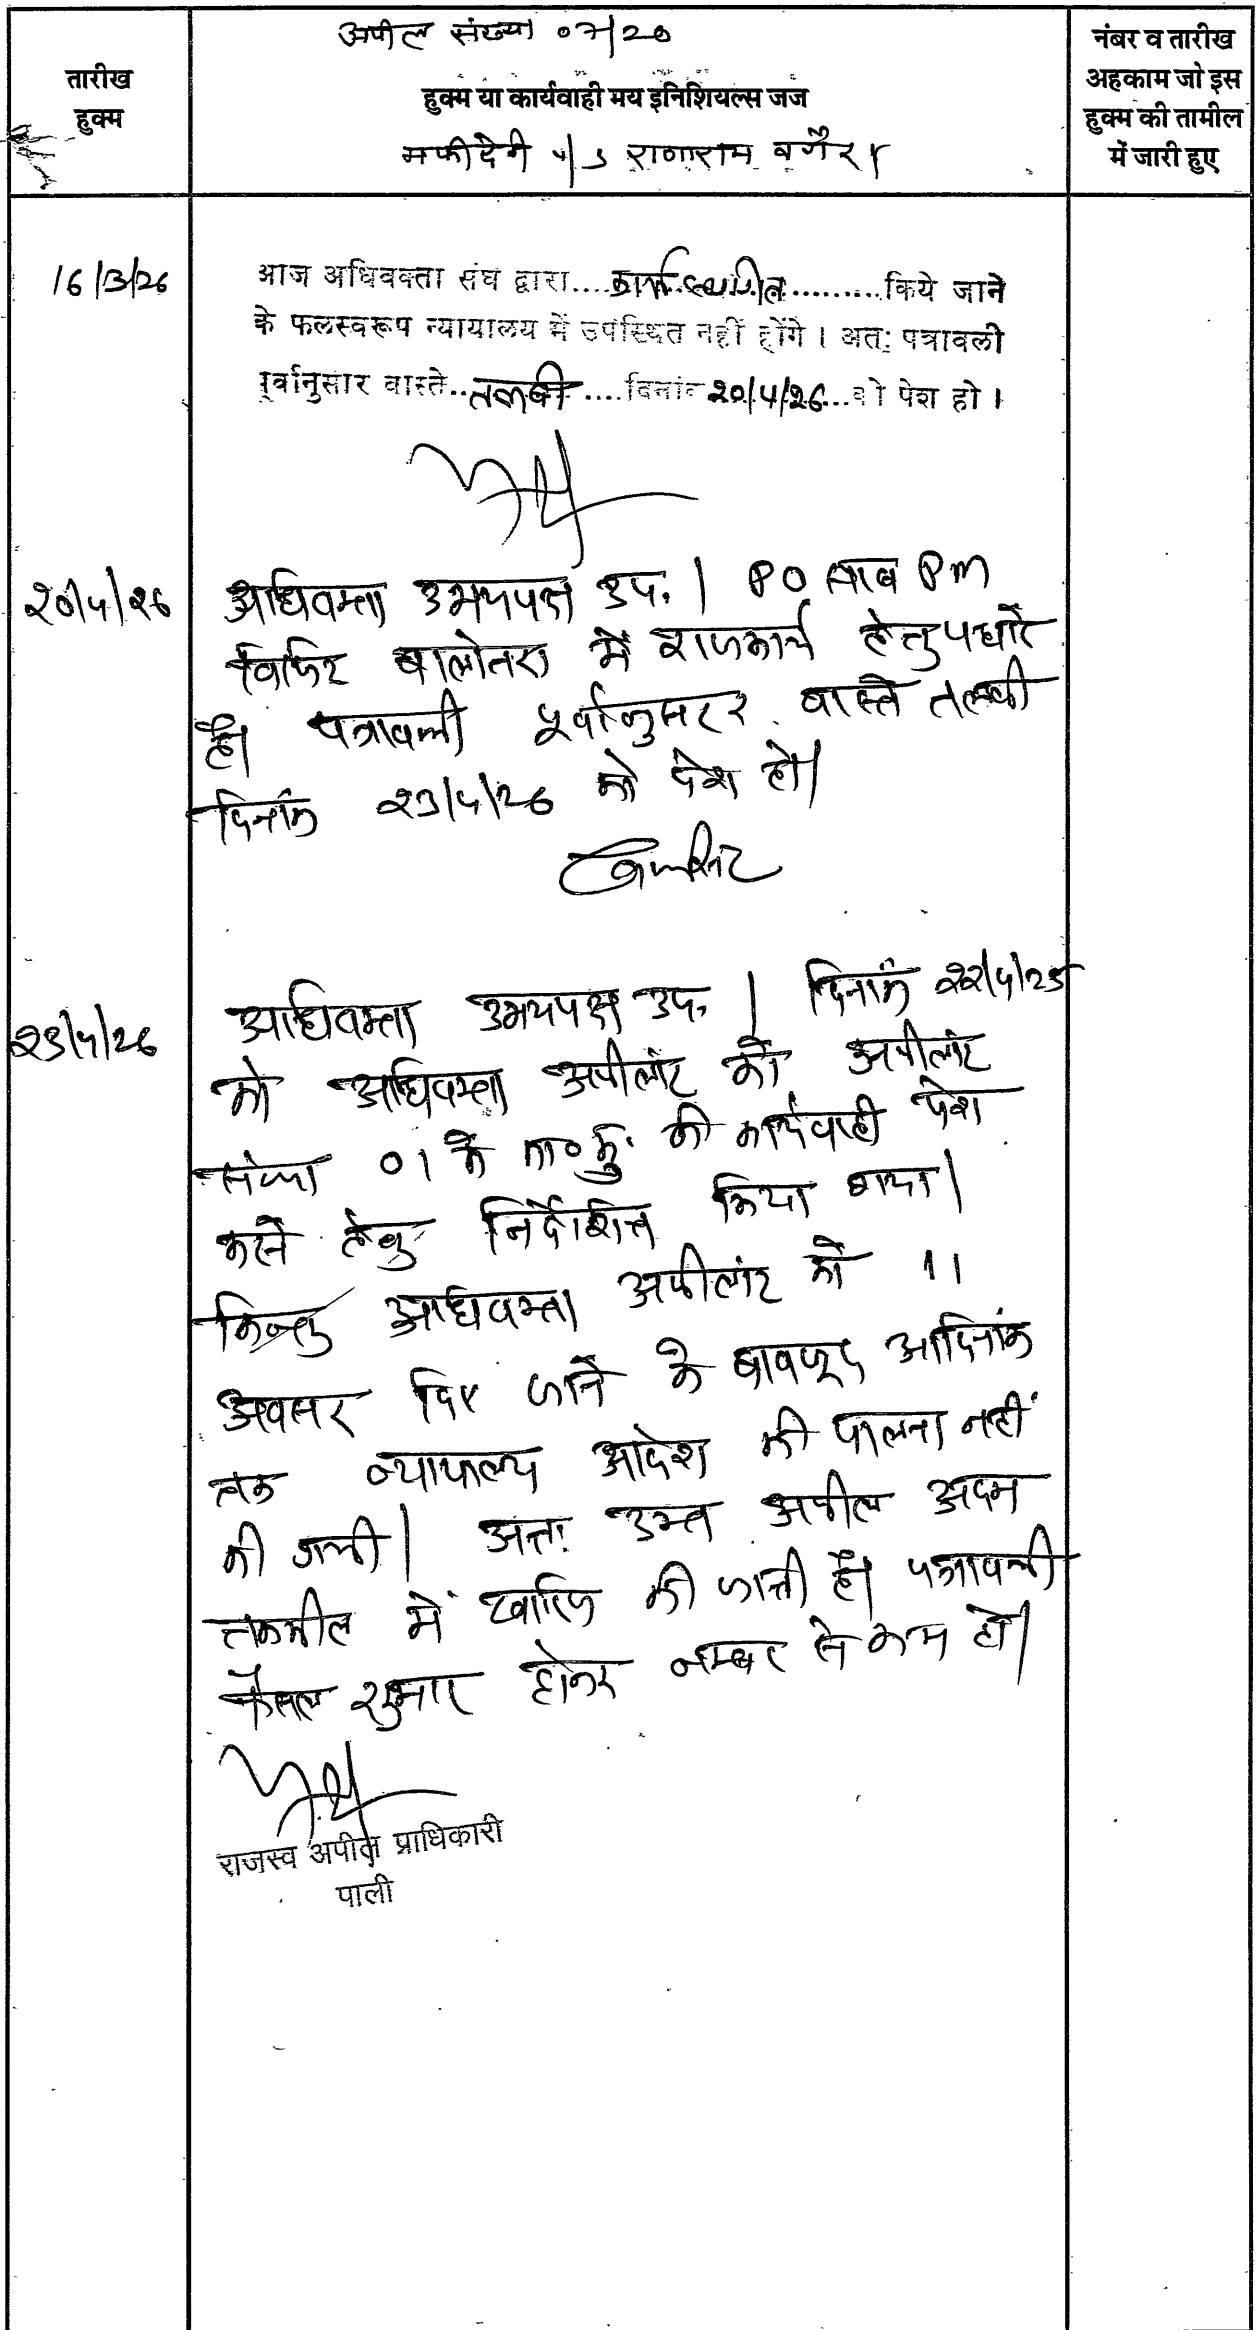 अपील संख्या 07/20
तारीख
हुक्म
हुक्म या कार्यवाही मय इनिशियल्स जज
नंबर व तारीख
अहकाम जो इस
हुक्म की तामील
में जारी हुए
मफीदेवी v/s राणाराम वगैरा
16/3/26
आज अधिवक्ता संघ द्वारा....कार्य स्थगित.........किये जाने
के फलस्वरूप न्यायालय में उपस्थित नहीं होंगे। अतः पत्रावली
पूर्वानुसार वास्ते..तलबी....दिनांक 20/4/26...को पेश हो।
20/4/26
अधिवक्ता उभयपक्ष उप.। PO साब PM
विजिट बालोतरा में राजकार्य हेतु पधारे
है। पत्रावली पूर्वानुसार वास्ते तलबी
दिनांक 23/4/26 को पेश हो।
23/4/26
अधिवक्ता उभयपक्ष उप.। दिनांक 22/4/25
को अधिवक्ता अपीलांट को अपीलांट
संख्या 01 के का०मु. की कार्यवाही पेश
करने हेतु निर्देशित किया गया।
किन्तु अधिवक्ता अपीलांट को 11
अवसर दिए जाने के बावजूद आदिनांक
तक न्यायालय आदेश की पालना नहीं
की गयी। अतः उक्त अपील अदम
तकमील में खारिज की जाती है। पत्रावली
फैसल शुमार होकर नम्बर से कम हो।
राजस्व अपील प्राधिकारी
पाली